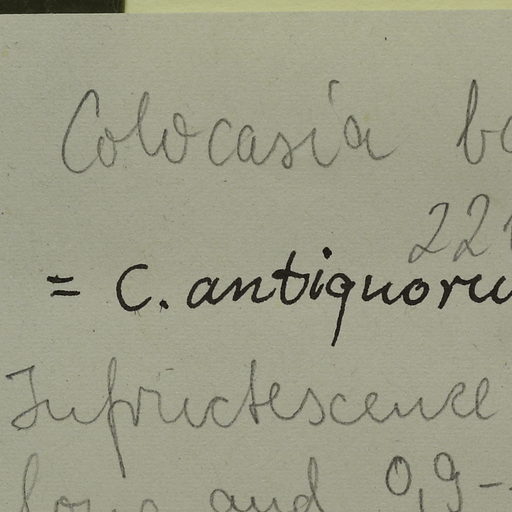 Colocasia
22
= C. antiquoru
Infructescence
long and 0,9-